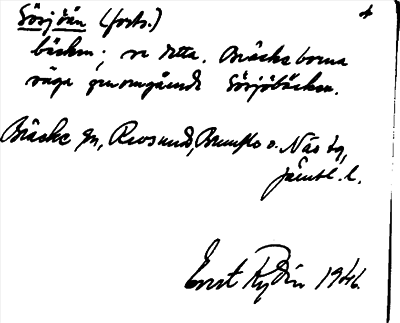 Görjöån (forts.) 4
bäcken; se detta. Bräckeborna
säga genomgående Görjöbäcken.
Bräcke sn, Revsund, Brunflo o. Näs tg,
Jämtl. l.
Ernst Rydén 1946.